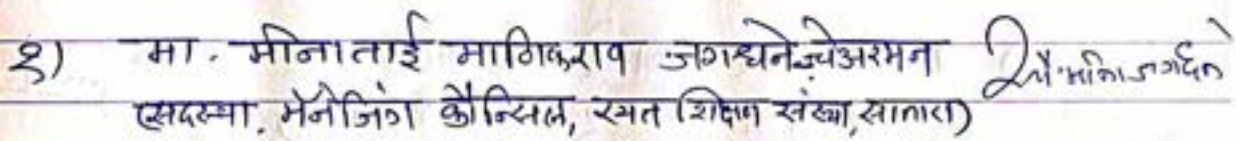 १) मा. मीनाताई माणिकराव जगधने चेअरमन
(सदस्या, मॅनेजिंग कौन्सिल, रयत शिक्षण संस्था, सातारा)